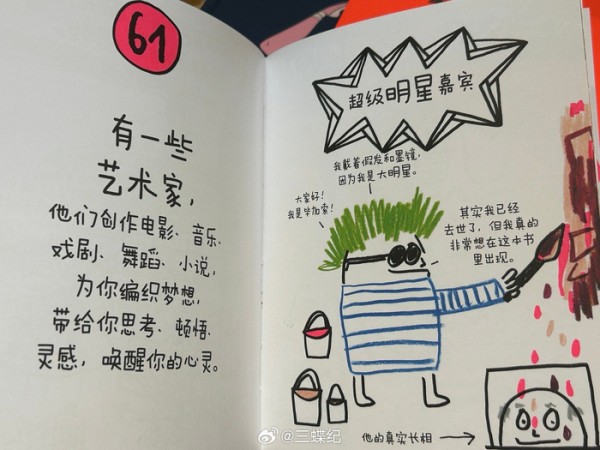 61
有一些
艺术家，
他们创作电影、音乐、
戏剧、舞蹈、小说，
为你编织梦想，
带给你思考、顿悟、
灵感，唤醒你的心灵。
超级明星嘉宾
我戴着假发和墨镜，
因为我是大明星。
大家好！
我是毕加索！
其实我已经
去世了，但我真的
非常想在这本书
里出现。
他的真实长相
@三蝶纪